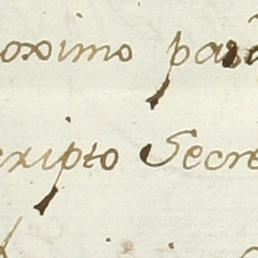 oximo para
cripto Secre